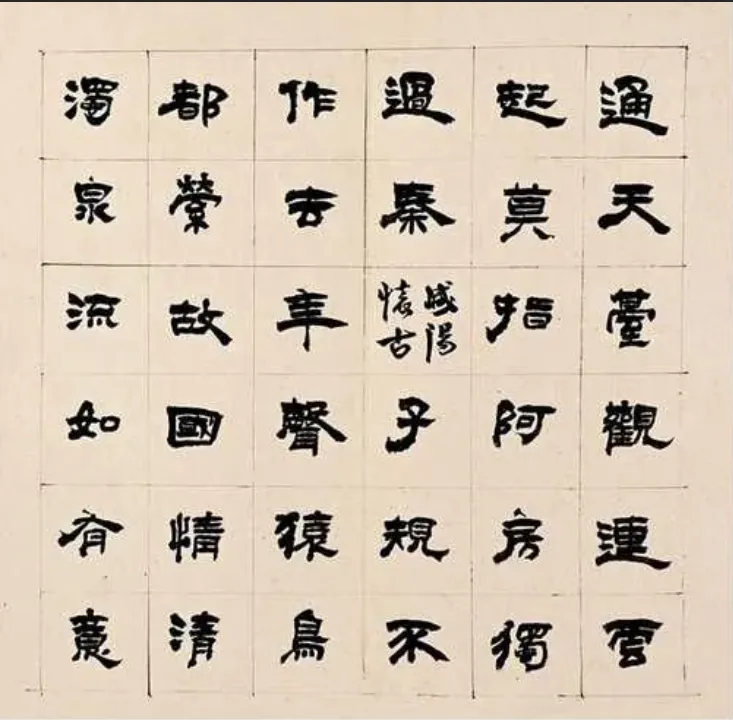 通天臺觀連雲
起莫指阿房獨
過秦
咸陽
懷古
子規不
作去年聲猿鳥
都縈故國情清
濁泉流如有意